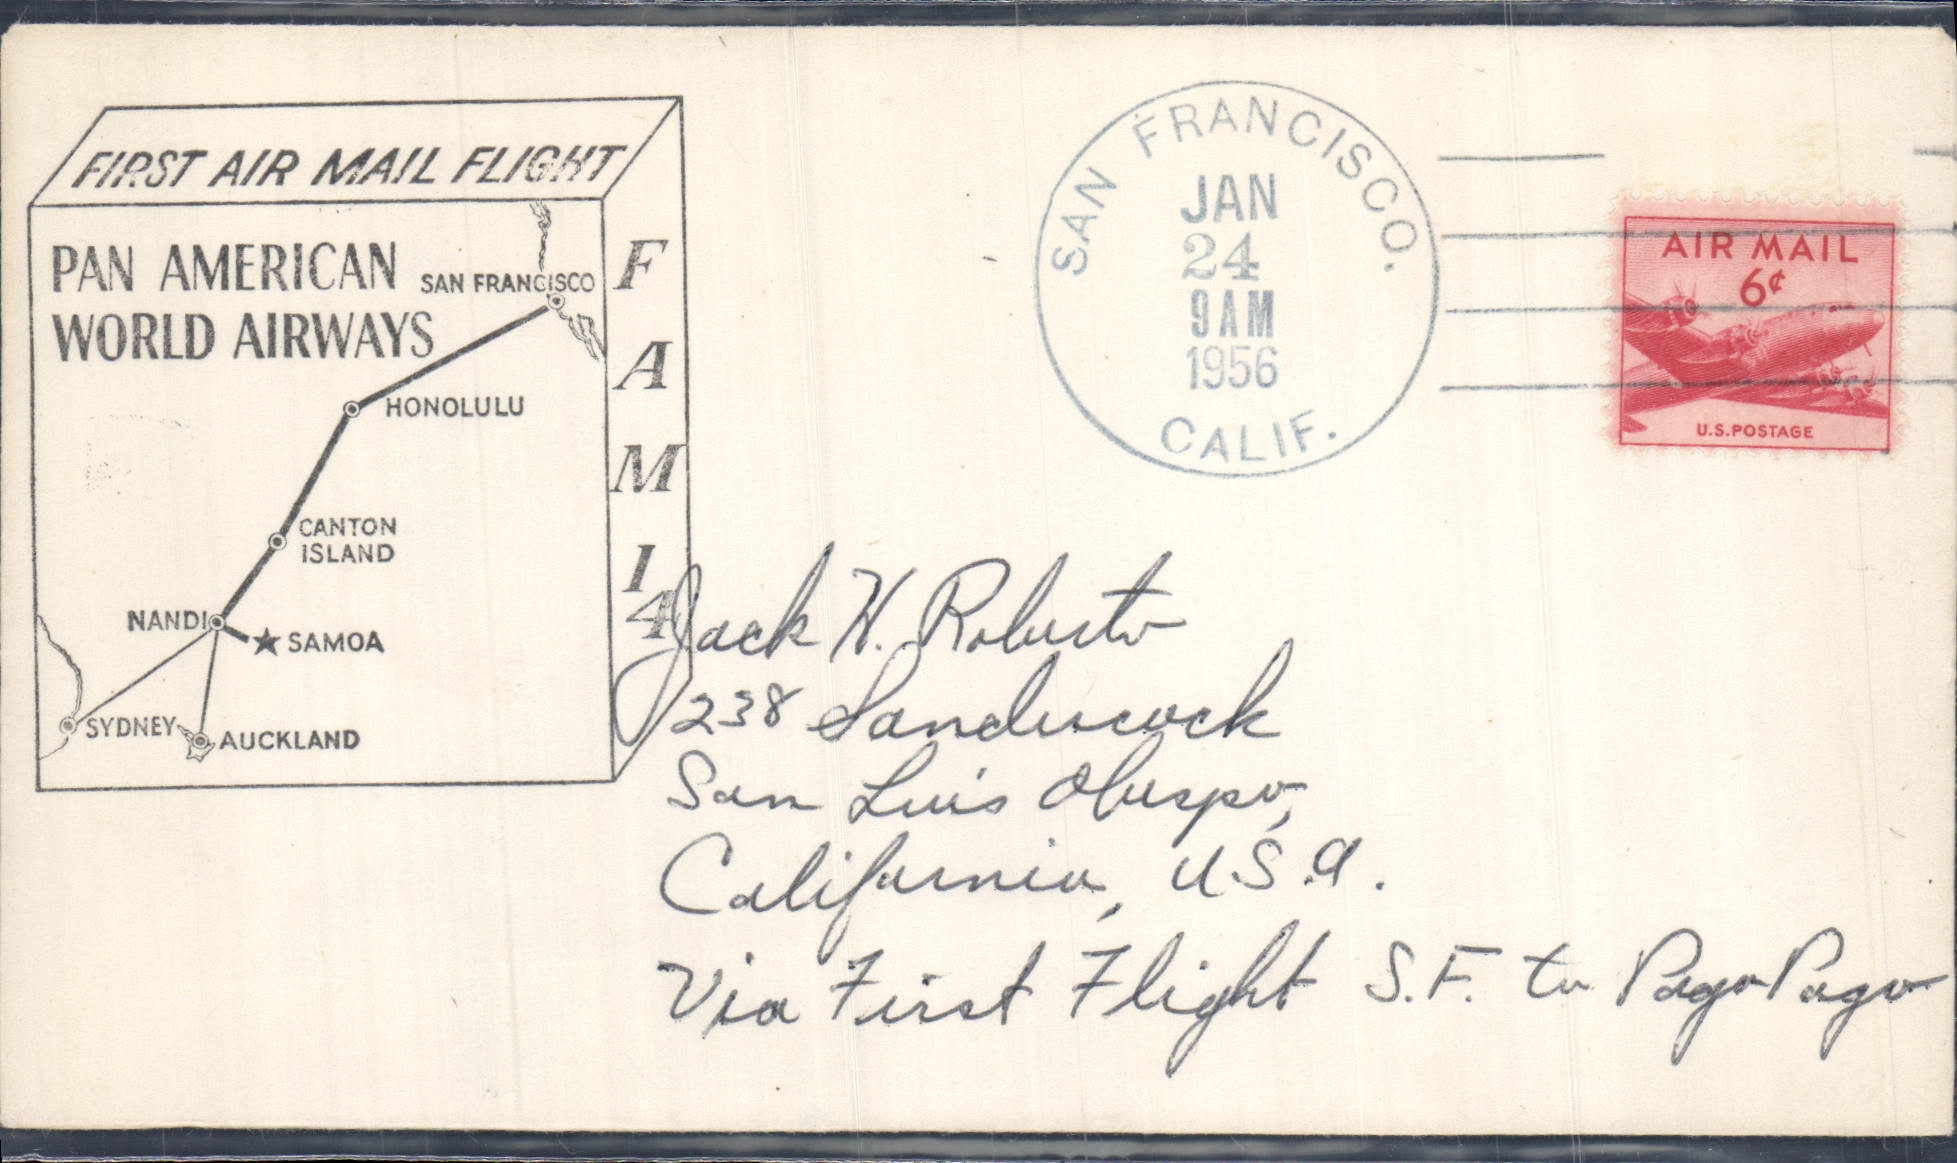 FIRST AIR MAIL FLIGHT
PAN AMERICAN
WORLD AIRWAYS
F
A
M
14
SAN FRANCISCO
HONOLULU
CANTON
ISLAND
NANDI
SAMOA
SYDNEY
AUCKLAND
SAN FRANCISCO.
JAN
24
9 AM
1956
CALIF.
AIR MAIL
6¢
U.S. POSTAGE
Jack H. Roberto
238 Sandercock
San Luis Obispo,
California, U.S.A.
Via First Flight S.F. to Pago Pago